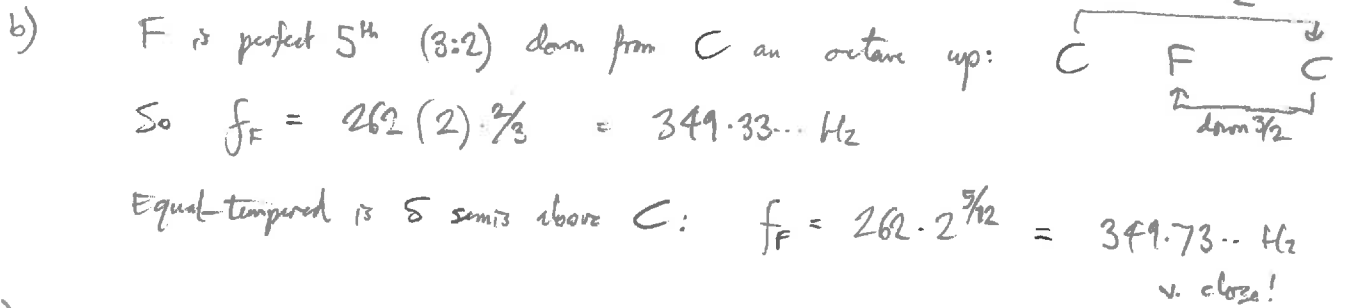 b) F is perfect 5th (3:2) down from C an octave up: C F C
down 3/2
So fF = 262 (2) · 2/3 = 349.33... Hz
Equal-tempered is 5 semis above C: fF = 262 · 2^5/12 = 349.73.. Hz
v. close!